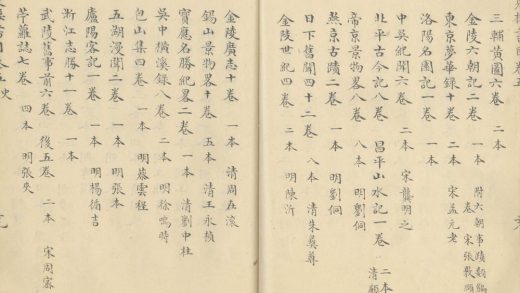 三輔黃圖六卷 二本
金陵六朝記二卷 一本 附六朝事蹟類編二卷 宋張敦頤
東京夢華錄十卷 二本 宋孟元老
洛陽名園記一卷 一本
中吳紀聞六卷 二本 宋龔明之
北平古今記八卷 昌平山水記一卷 二本 清顧
帝京景物畧八卷 八本 明劉侗
燕京古蹟二卷 一本 明劉侗
日下舊聞四十二卷 八本 清朱彝尊
金陵世紀四卷 二本 明陳沂
金陵廣志十卷 二本 清周在浚
錫山景物畧十卷 五本 清王永積
寶應名勝紀畧二卷 一本 清劉中柱
吳中橫溪錄八卷 二本 明徐鳴時
包山集四卷 一本 明蔡雲程
五湖漫聞二卷 一本 明張本
廬陽客記一卷 一本 明楊循吉
浙江志勝十一卷 一本
武陵舊事前六卷 後五卷 二本 宋周密
苧蘿誌七卷 四本 明張夬